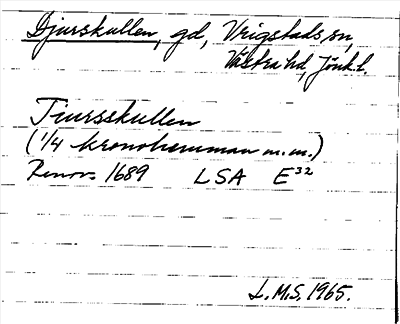 Djurskullen, gd, Vrigstads sn,
Västra hd, Jönk. l.
Tiursskullen
(1/4 kronohemman m.m.)
Renov. 1689 LSA E32
L.M.S. 1965.